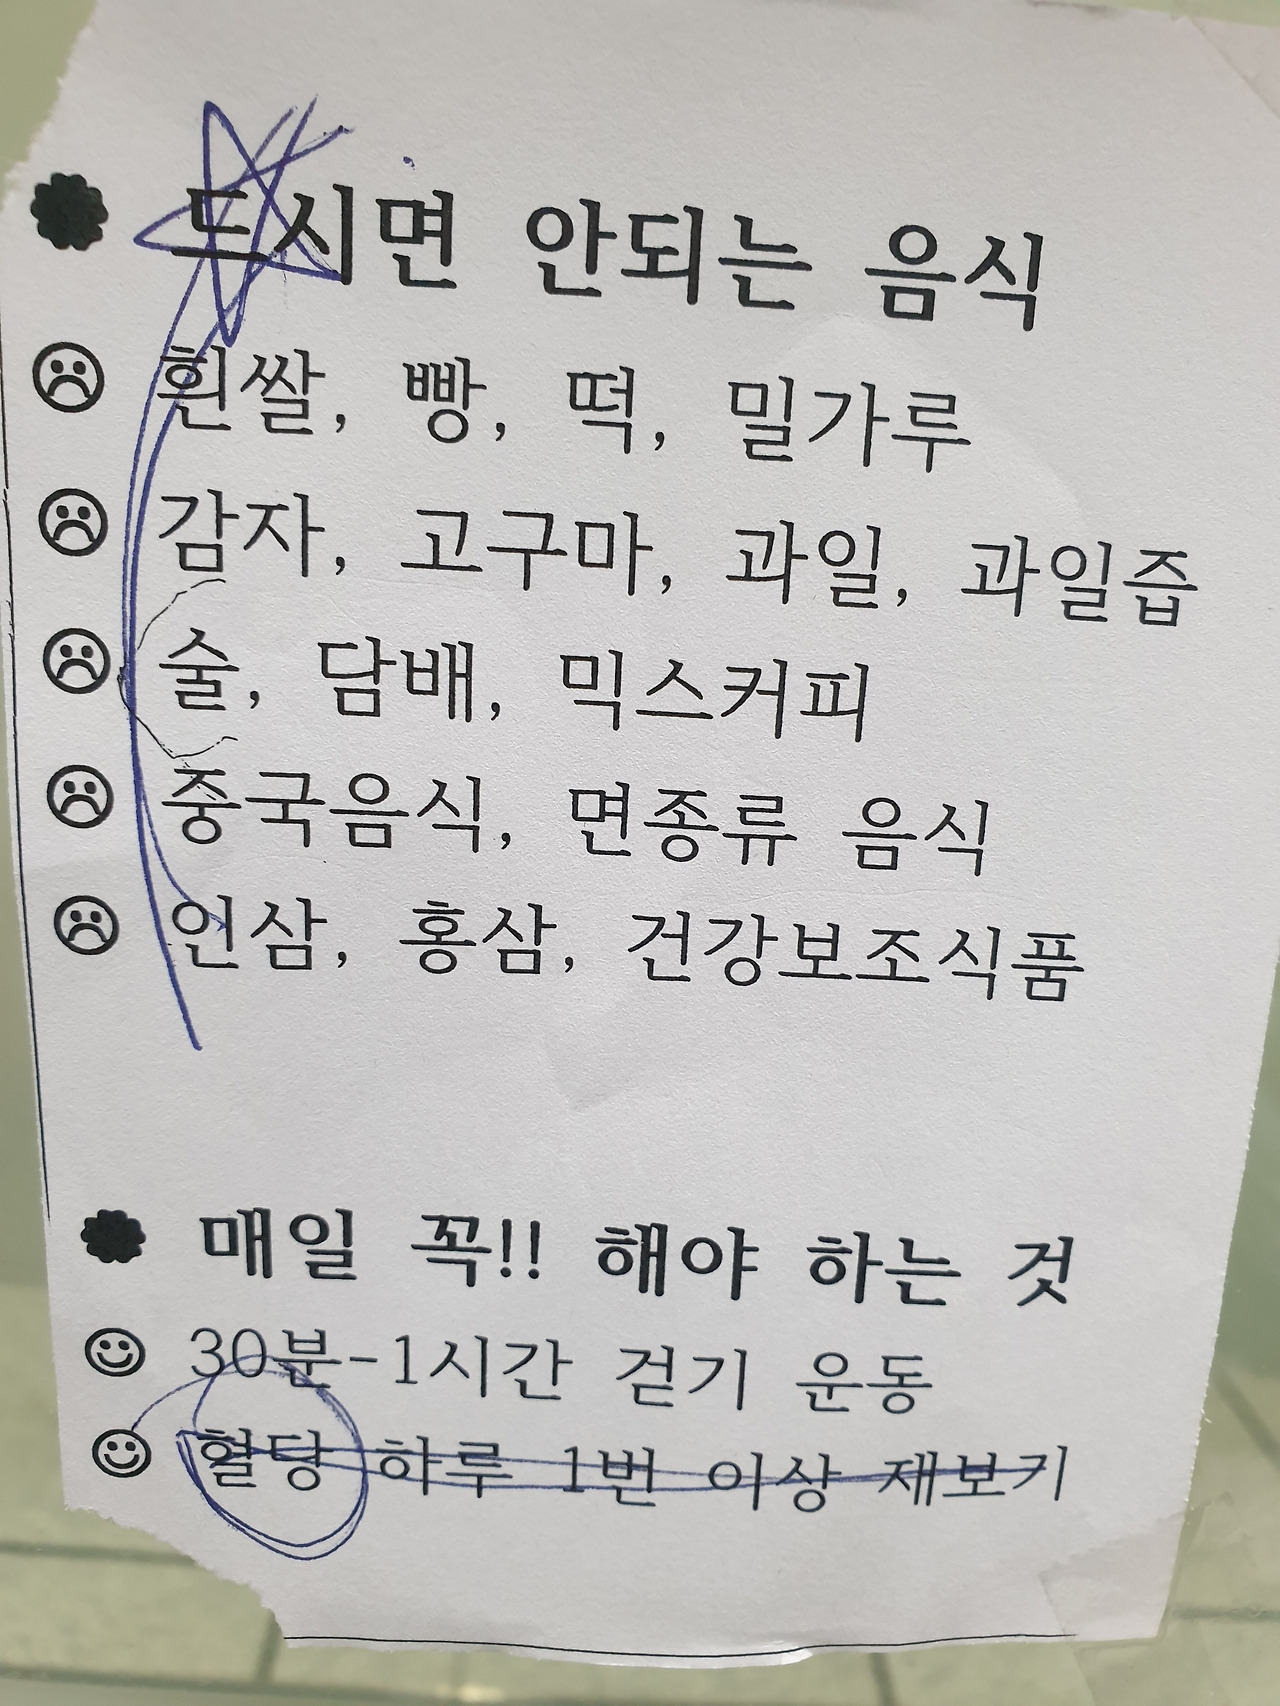 드시면 안되는 음식
흰쌀, 빵, 떡, 밀가루
감자, 고구마, 과일, 과일즙
술, 담배, 믹스커피
중국음식, 면종류 음식
인삼, 홍삼, 건강보조식품
매일 꼭!! 해야 하는 것
30분-1시간 걷기 운동
혈당 하루 1번 이상 재보기